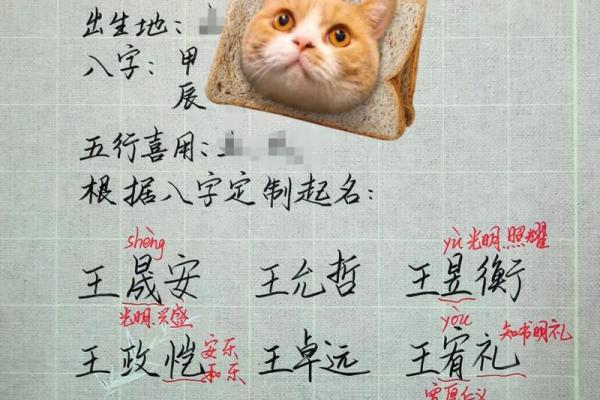 出生地：
八字：甲
辰
五行喜用：
根据八字定制起名：
shèng
yù 光明.照耀
王晟安 王允哲 王昱衡
光明.兴盛
yòu
知书明礼
王政恺 安乐 和乐 王卓远 王宥礼
宽厚仁义